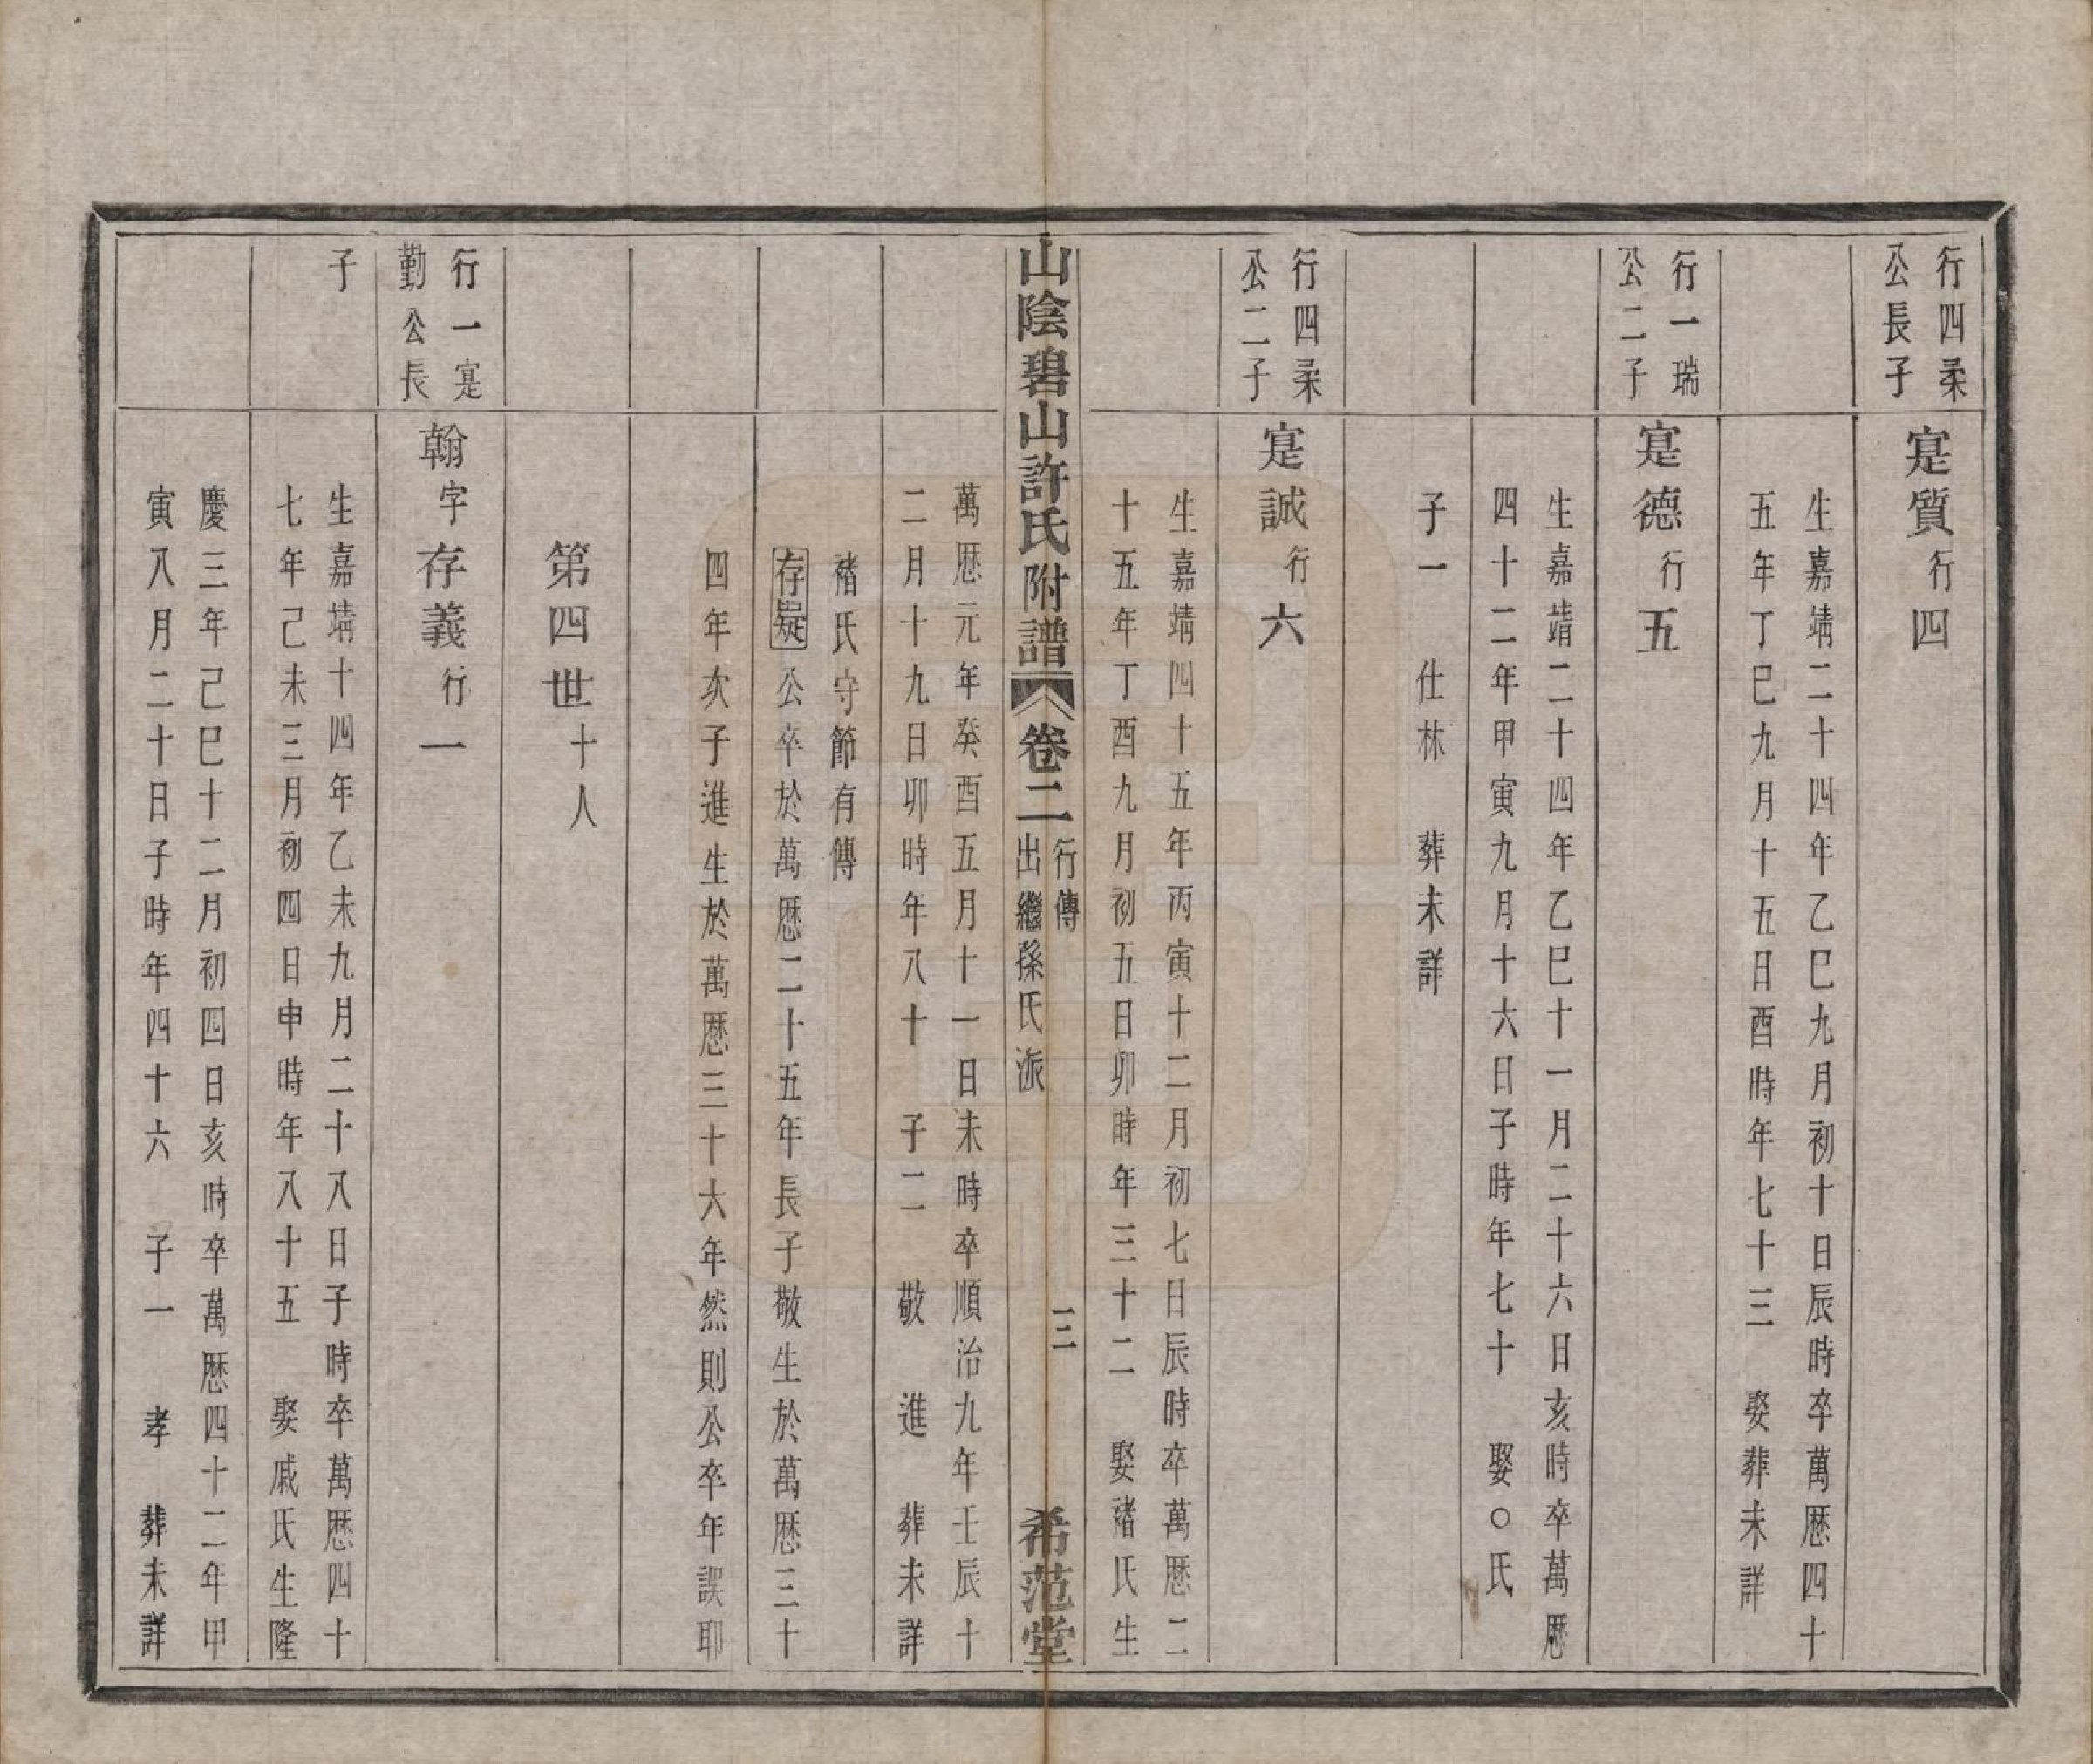 行四柔
公長子
寔質行四
生嘉靖二十四年乙巳九月初十日辰時卒萬厯四十
五年丁巳九月十五日酉時年七十三　娶葬未詳
行一瑞
公二子
寔德行五
生嘉靖二十四年乙巳十一月二十六日亥時卒萬厯
四十二年甲寅九月十六日子時年七十　娶○氏
子一　仕林　葬未詳
行四柔
公二子
寔誠行六
生嘉靖四十五年丙寅十二月初七日辰時卒萬厯二
十五年丁酉九月初五日卯時年三十二　娶褚氏生
山陰碧山許氏附譜　卷二　行傳
出繼孫氏派　三　希范堂
萬厯元年癸酉五月十一日未時卒順治九年壬辰十
二月十九日卯時年八十　子二　敬　進　葬未詳
褚氏守節有傳
存疑公卒於萬厯二十五年長子敬生於萬厯三十
四年次子進生於萬厯三十六年然則公卒年誤耶
第四世十人
行一寔
勤公長
子
翰字存義行一
生嘉靖十四年乙未九月二十八日子時卒萬厯四十
七年己未三月初四日申時年八十五　娶戚氏生隆
慶三年己巳十二月初四日亥時卒萬厯四十二年甲
寅八月二十日子時年四十六　子一　孝　葬未詳